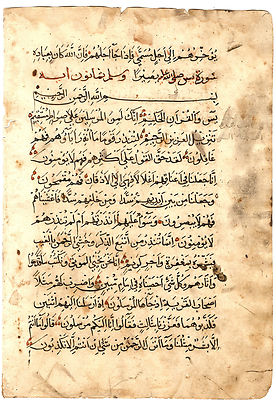 يؤخرهم الى اجل مسمى فاذا جا اجلهم فان الله كان بعباده
سورة يس بصيرا وثمانون اية
بسم الله الرحمن الرحيم
يس والقران الحكيم انك لمن المرسلين على صراط مستقيم
تنزيل العزيز الرحيم لتنذر قوما ما انذر اباؤهم فهم
غافلون لقد حق القول على اكثرهم فهم لا يؤمنون
انا جعلنا في اعناقهم اغلالا فهي الى الاذقان فهم مقمحون
وجعلنا من بين ايديهم سدا ومن خلفهم سدا فاغشيناهم
فهم لا يبصرون وسواء عليهم اانذرتهم ام لم تنذرهم
لا يؤمنون انما تنذر من اتبع الذكر وخشي الرحمن بالغيب
فبشره بمغفرة واجر كريم انا نحن نحيي الموتى ونكتب ما قدموا
واثارهم وكل شيء احصيناه في امام مبين واضرب لهم مثلا
اصحاب القرية اذ جاءها المرسلون اذ ارسلنا اليهم اثنين
فكذبوهما فعززنا بثالث فقالوا انا اليكم مرسلون قالوا ما انتم
الا بشر مثلنا وما انزل الرحمن من شيء ان انتم الا تكذبون